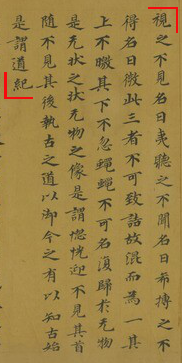 視之不見名曰夷聽之不聞名曰希搏之不
得名曰微此三者不可致詰故混而為一其
上不皦其下不忽繩繩不可名復歸於无物
是无狀之狀无物之像是謂惚恍迎不見其首
隨不見其後執古之道以御今之有以知古始
是謂道紀